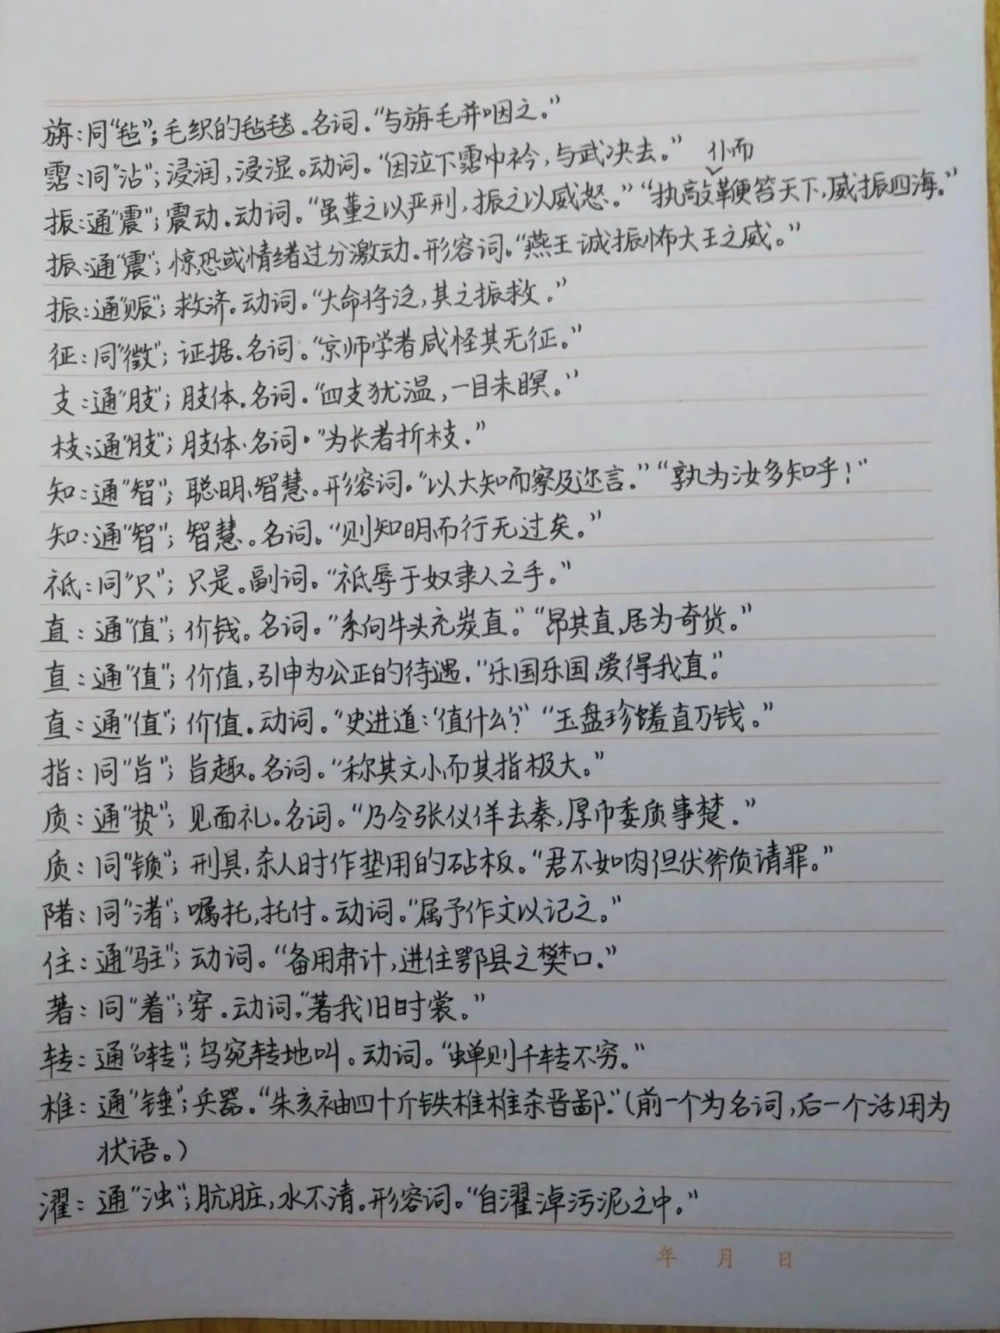 旃:同“毡”;毛织的毡毯.名词.“与旃毛并咽之.”
霑:同“沾”;浸润,浸湿。动词.“因泣下霑巾衿,与武决去。”
仆而
振:通“震”;震动.动词.“虽董之以严刑,振之以威怒.”“执敲鞭笞天下,威振四海.”
振:通“震”;惊恐或情绪过分激动.形容词.“燕王诚振怖大王之威。”
振:通“赈”;救济.动词.“大命将泛,其之振救.”
征:同“徵”;证据.名词.“京师学者咸怪其无征.”
支:通“肢”;肢体.名词.“四支犹温,一目未瞑.”
枝:通“肢”;肢体.名词.“为长者折枝.”
知:通“智”;聪明、智慧。形容词.“以大知而察及迩言.”“孰为汝多知乎!”
知:通“智”;智慧。名词。“则知明而行无过矣。”
祗:同“只”;只是。副词.“祗辱于奴隶人之手。”
直:通“值”;价钱。名词.“系向牛头充炭直.”“昂其直,居为奇货。”
直:通“值”;价值,引申为公正的待遇.“乐国乐国,爰得我直.”
直:通“值”;价值.动词.“史进道:‘值什么?’”“玉盘珍馐直万钱.”
指:同“旨”;旨趣。名词.“称其文小而其指极大。”
质:通“贽”;见面礼.名词.“乃令张仪佯去秦,厚币委质事楚.”
质:同“锧”;刑具,杀人时作垫用的砧板.“君不如肉袒伏斧质请罪.”
陼:同“渚”;嘱托,托付.动词.“属予作文以记之.”
住:通“驻”;动词.“备用肃计,进住鄂县之樊口.”
著:同“着”;穿.动词.“著我旧时裳.”
转:通“啭”;鸟宛转地叫.动词.“蝉则千转不穷.”
椎:通“锤”;兵器.“朱亥袖四十斤铁椎椎杀晋鄙.”(前一个为名词,后一个活用为
状语。)
濯:通“浊”;肮脏,水不清.形容词.“自濯淖污泥之中.”
年 月 日